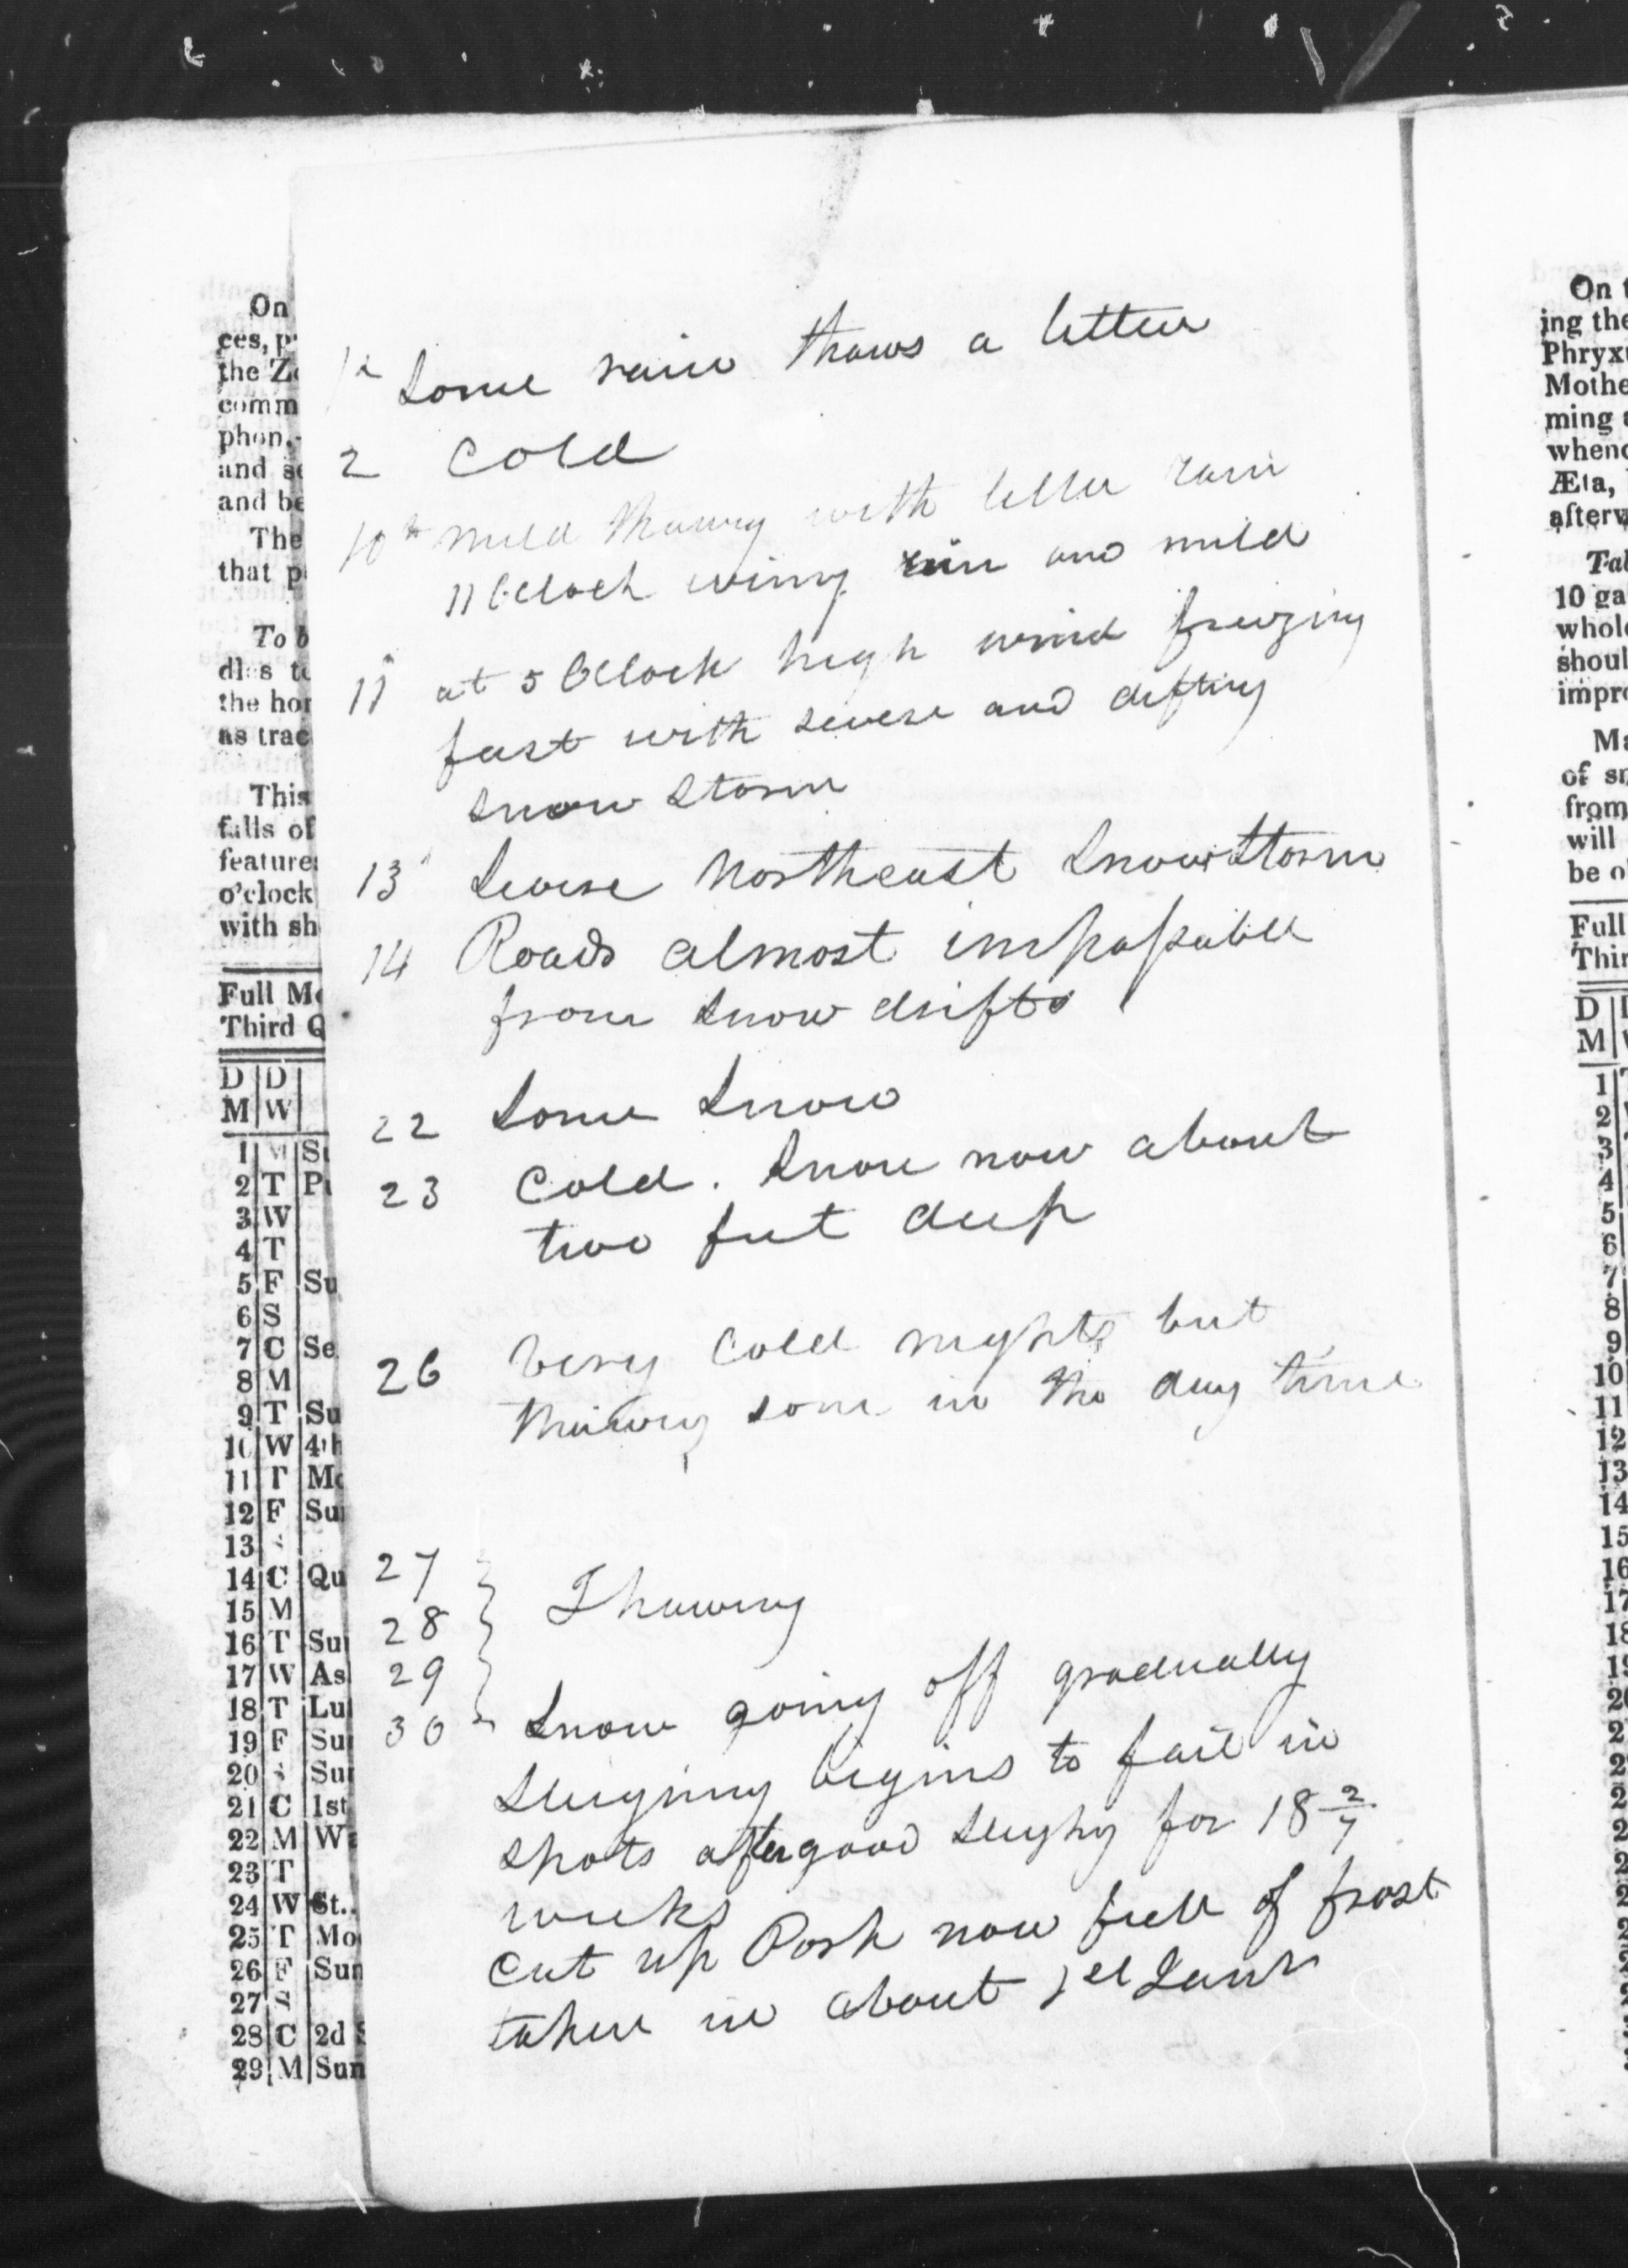 On
ces, p
the Zo
comm
phon,-
and se
and be
The
that p
To b
dles to
the hor
as trac
This
falls of
features
o'clock
with sh
Full Mo
Third Q
D D
M W
1 M Su
2 T Pu
3 W
4 T
5 F Su
6 S
7 C Se
8 M
9 T Su
10 W 4th
11 T Mo
12 F Sun
13 S
14 C Qu
15 M
16 T Sun
17 W As
18 T Lu
19 F Sun
20 S Sun
21 C 1st
22 M Wa
23 T
24 W St..
25 T Mo
26 F Sun
27 S
28 C 2d S
29 M Sun
Some rain thaws a little
2 Cold
10th mild thawing with little rain
11 OClock rain and mild
11 at 5 OClock high wind freezing
fast with severe and drifting
snow storm
13 Severe Northeast Snowstorm
14 Roads almost impassable
from snow drifts
22 Some Snow
23 Cold. Snow now about
two feet deep
26 Very Cold nights but
thawing some in the day time
27
28 Thawing
29
30 Snow going off gradually
Sleighing begins to fail in
spots after good sleighing for 18 2/7
weeks
Cut up Pork now full of frost
taken in about 1st Jany
On t
ing the
Phryxu
Mothe
ming a
whenc
Æta,
afterw
Tal
10 ga
whole
shoul
impro
Ma
of sn
from
will
be o
Full
Thir
D
M
1
2
3
4
5
6
7
8
9
10
11
12
13
14
15
16
17
18
19
20
2
2
2
2
2
2